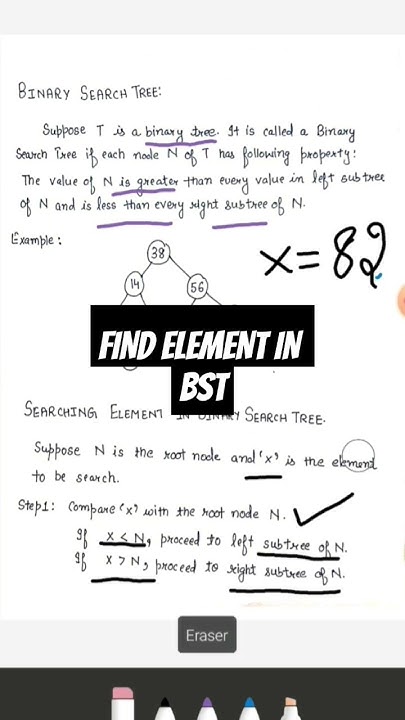 BINARY SEARCH TREE:
Suppose T is a binary tree. It is called a Binary
Search Tree if each node N of T has following property:
The value of N is greater than every value in left subtree
of N and is less than every right subtree of N.
Example:
38
x=82
14
56
FIND ELEMENT IN
BST
SEARCHING ELEMENT IN BINARY SEARCH TREE.
Suppose N is the root node and 'x' is the element
to be search.
Step1: Compare 'x' with the root node N.
If x < N, proceed to left subtree of N.
If x > N, proceed to right subtree of N.
Eraser